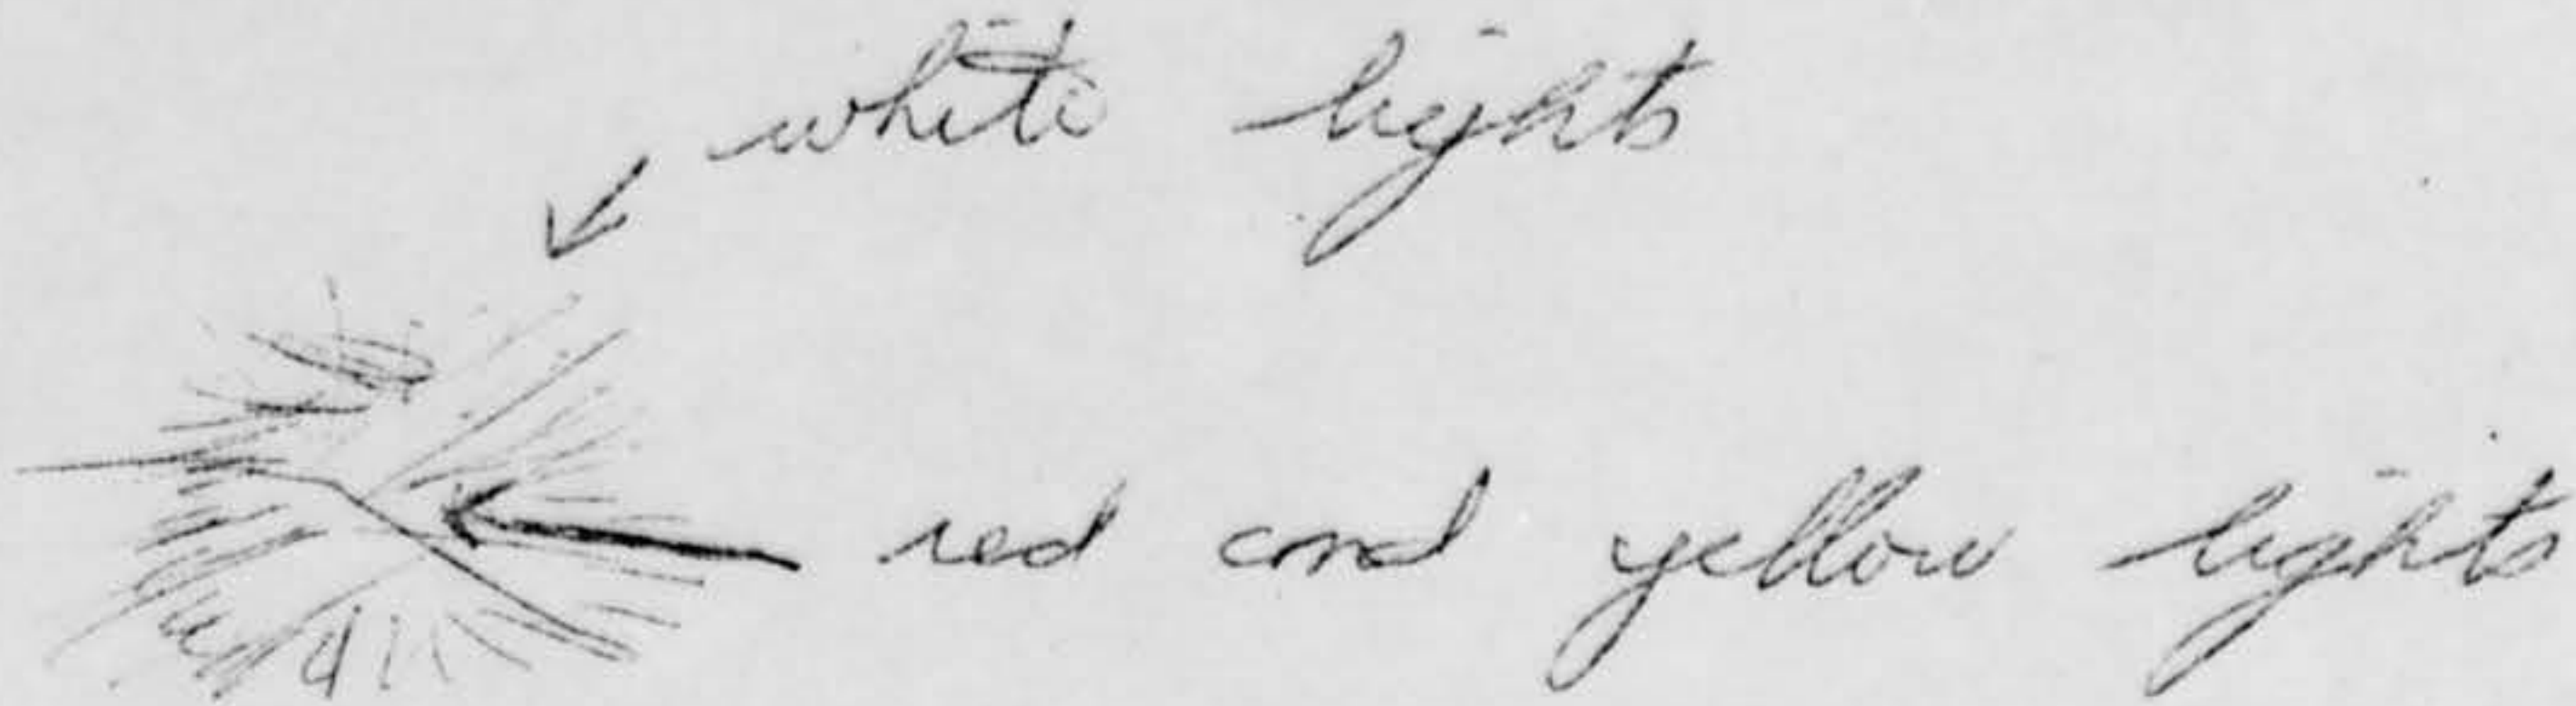 white lights
red and yellow lights